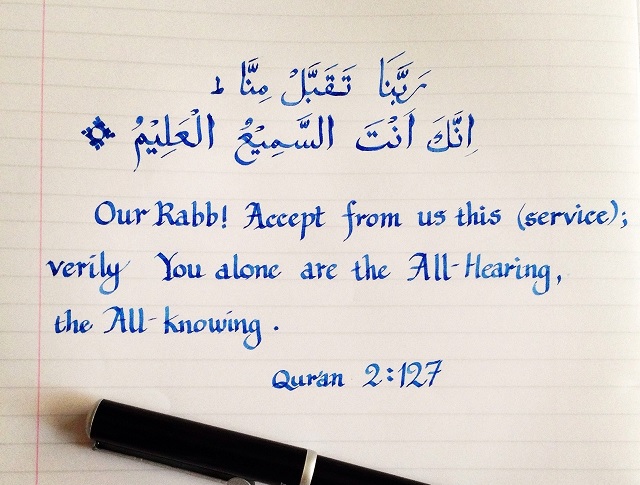 رَبَّنَا تَقَبَّلْ مِنَّا ؕ
اِنَّكَ اَنْتَ السَّمِيْعُ الْعَلِيْمُ
Our Rabb! Accept from us this (service);
verily You alone are the All-Hearing,
the All-knowing.
Qur'an 2:127